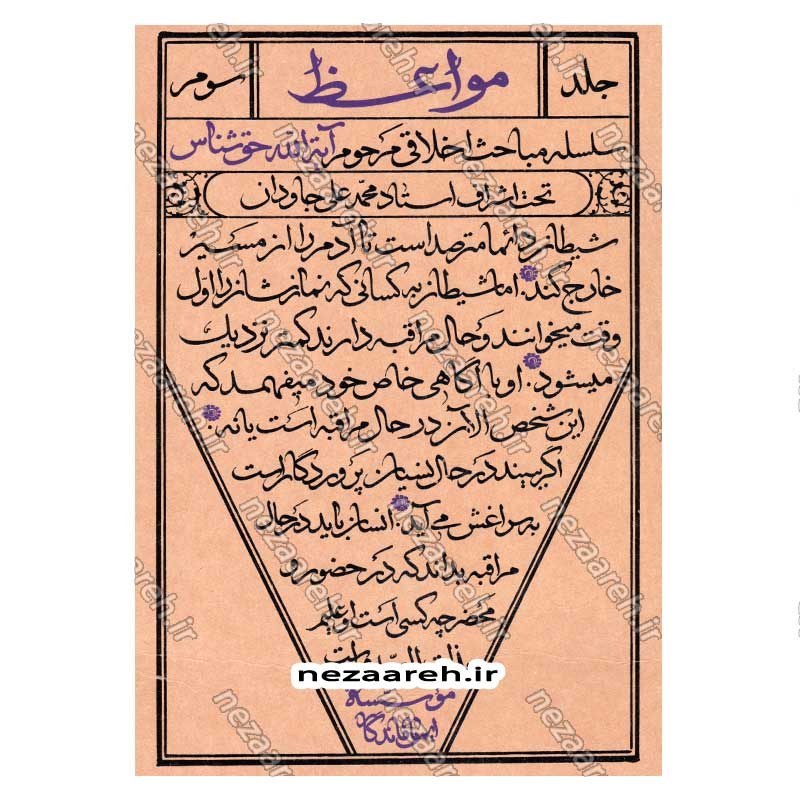 جلد مواعظ سوم
سلسله مباحث اخلاقی مرحوم آیة الله حق شناس
تحت اشراف استاد محمد علی جاودان
شیطان دائما مترصد است تا آدم را از مسیر
خارج کند. اما شیطان به کسانی که نمازشان را اول
وقت میخوانند و حال مراقبه دارند کمتر نزدیک
میشود. او با آگاهی خاص خود میفهمد که
این شخص الآن در حال مراقبه است یا نه.
اگر ببیند در حال نسیان پروردگار است
به سراغش می آید. انسان باید در حال
مراقبه بداند که در حضور و
محضر چه کسی است او علیم
nezaareh.ir
مؤسسه